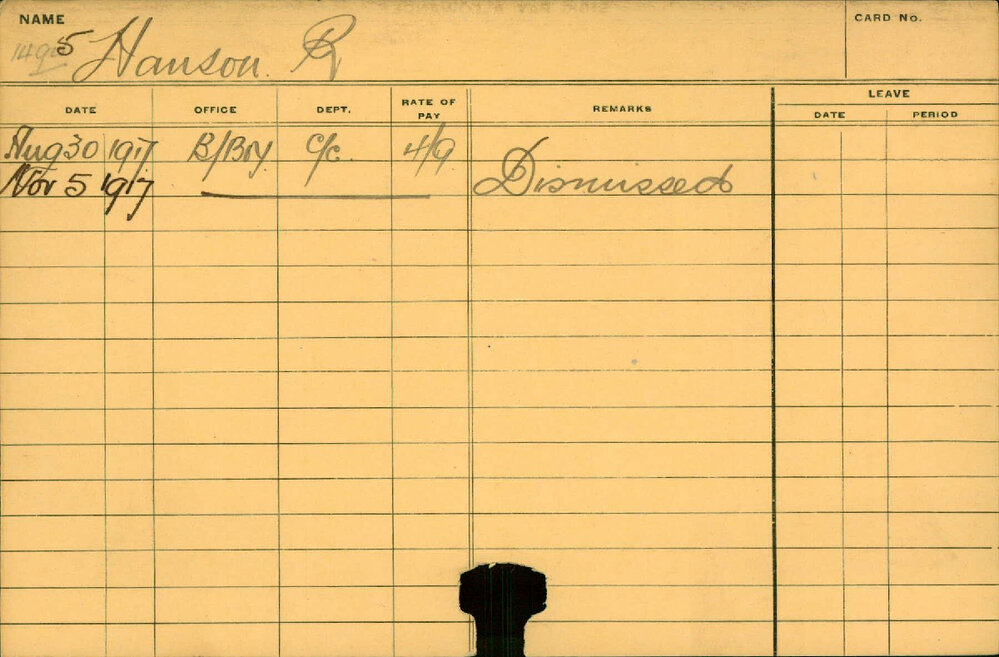 NAME
CARD No.
Hanson. R
LEAVE
DATE OFFICE DEPT. RATE OF PAY REMARKS DATE PERIOD
Aug 30 1917 B/Bry. C/c. 4/9
Nov 5 1917 Dismissed